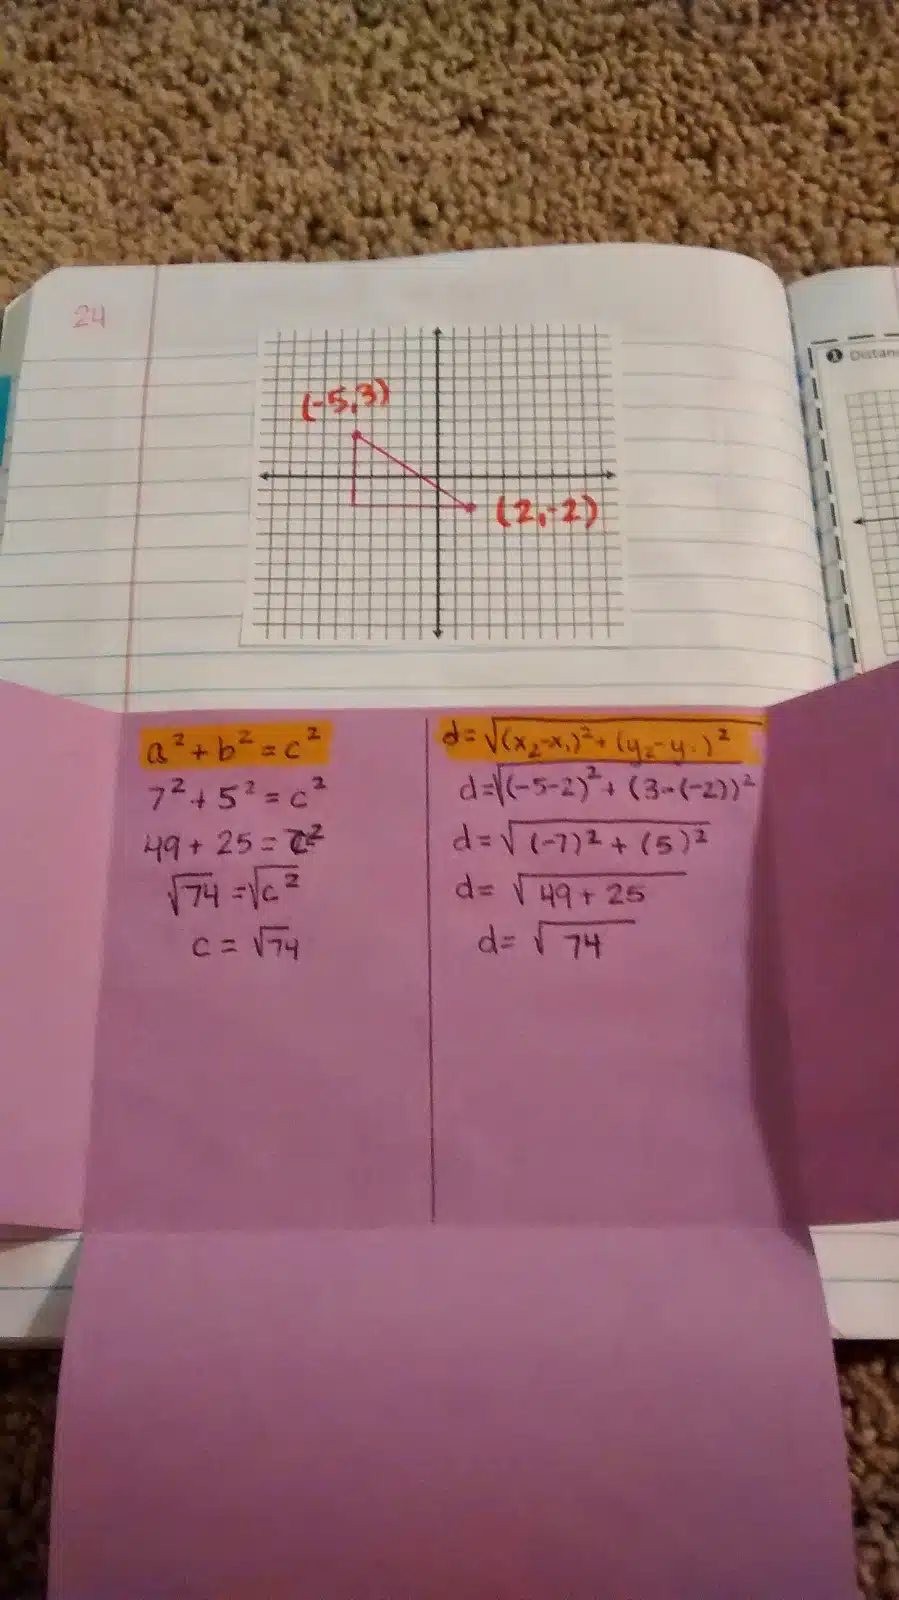 24
❶ Distan
(-5,3)
(2,-2)
a² + b² = c²
7² + 5² = c²
49 + 25 = c²
√74 = √c²
c = √74
d = √(x₂-x₁)² + (y₂-y₁)²
d = √(-5-2)² + (3-(-2))²
d = √(-7)² + (5)²
d = √49 + 25
d = √74